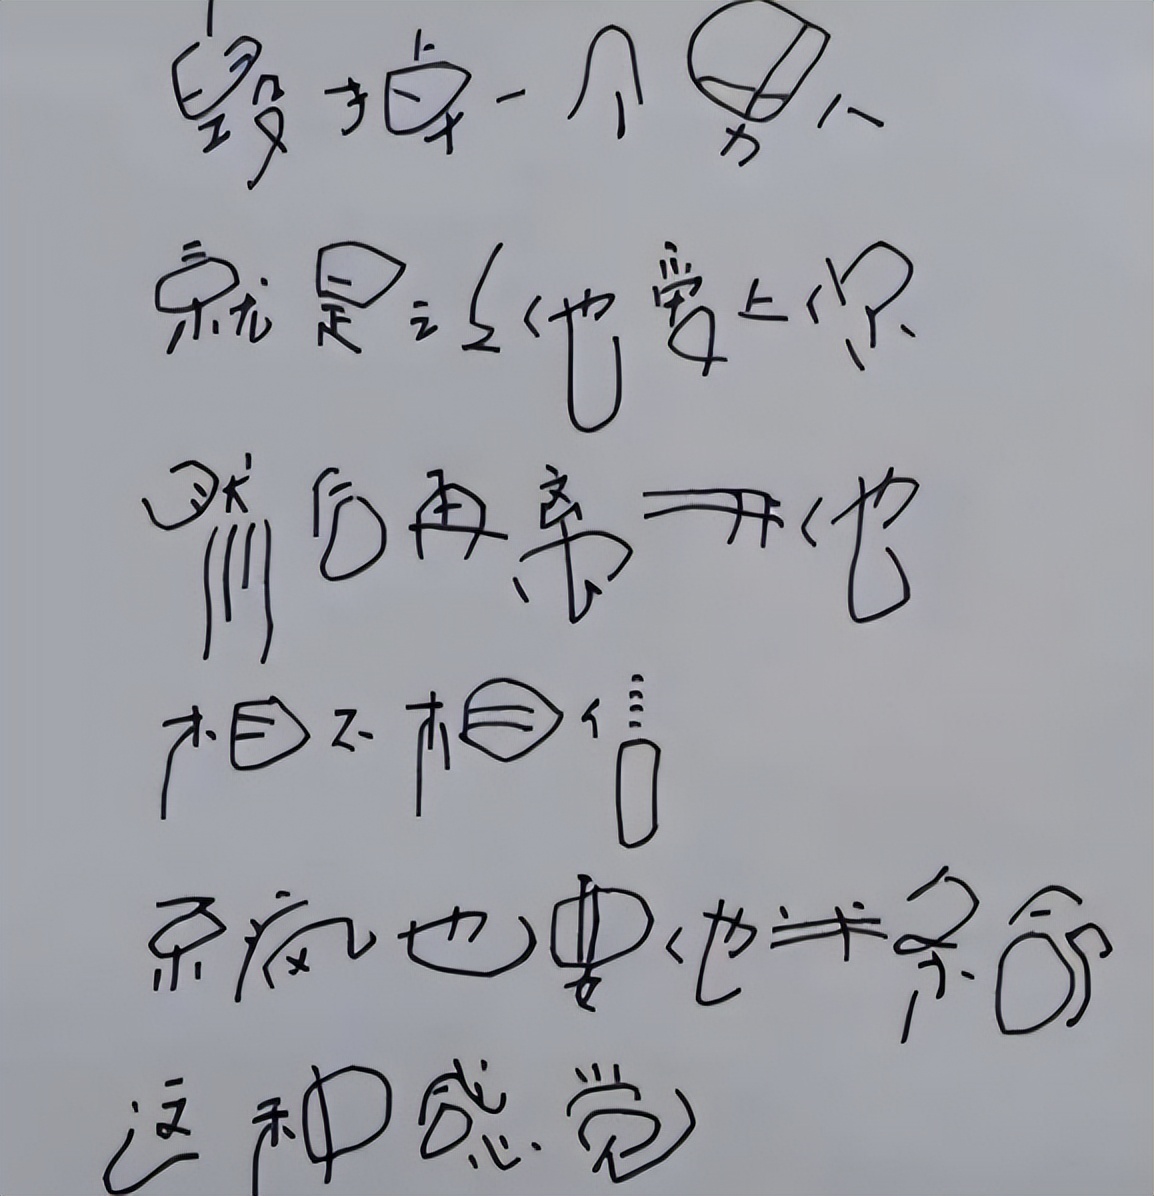 毁掉一个男人
就是让他爱上你
然后再离开他
相不相信
疯也要他半条命
这种感觉